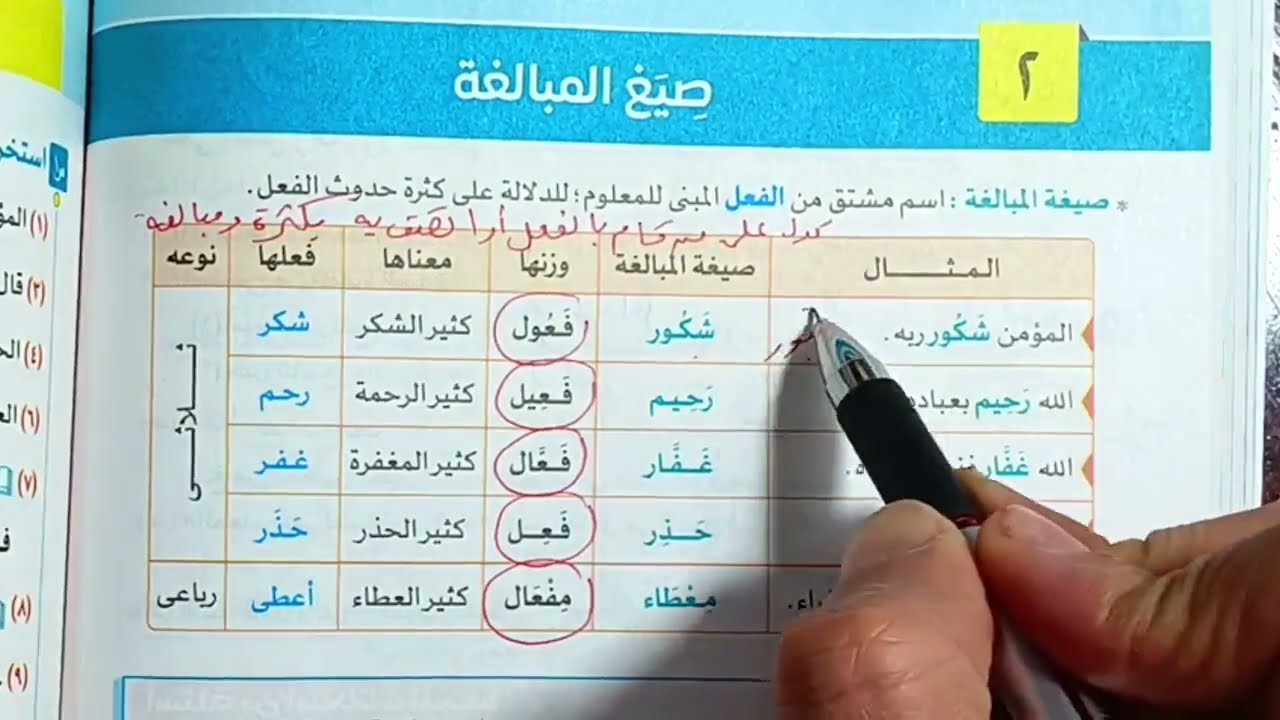 ٢
صِيَغ المبالغة
* صيغة المبالغة : اسم مشتق من الفعل المبنى للمعلوم؛ للدلالة على كثرة حدوث الفعل.
على من قام بالفعل أو اتصف به بكثرة ومبالغة
المـثـــــــال صيغة المبالغة وزنها معناها فَعلها نوعه
المؤمن شَكُور ربه. شَكُور فَعُول كثير الشكر شكر ثــــلاثـــى
الله رَحِيم رَحِيـم فَـعِيل كثير الرحمة رحم
الله غَفَّار غَـفَّـار فَـعَّال كثير المغفرة غفر
حَـذِر فَـعِـل كثير الحذر حَذَر
مِـعْطَاء مِفْعَال كثير العطاء أعطى رباعى
س١ استخر
(١) المؤ
(٢) قال
(٤) الح
(٦) الع
(٧)
(٨)
(٩)